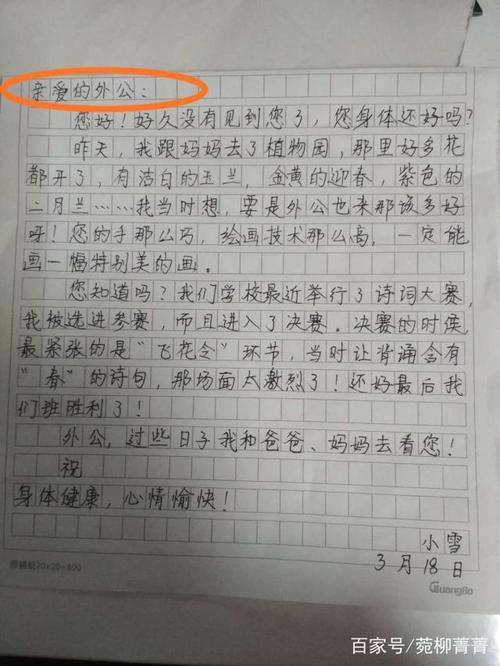 亲爱的外公：
您好！好久没有见到您了，您身体还好吗？
昨天，我跟妈妈去了植物园，那里好多花
都开了，有洁白的玉兰，金黄的迎春，紫色的
二月兰……我当时想，要是外公也来那该多好
呀！您的手那么巧，绘画技术那么高，一定能
画一幅特别美的画。
您知道吗？我们学校最近举行了诗词大赛，
我被选进参赛，而且进入了决赛。决赛的时候
最紧张的是“飞花令”环节，当时让背诵含有
“春”的诗句，那场面太激烈了！还好最后我
们班胜利了！
外公，过些日子我和爸爸、妈妈去看您！
祝
身体健康，心情愉快！
小雪
3月18日
稿纸20×20=400
GuangBo
百家号/菀柳菁菁